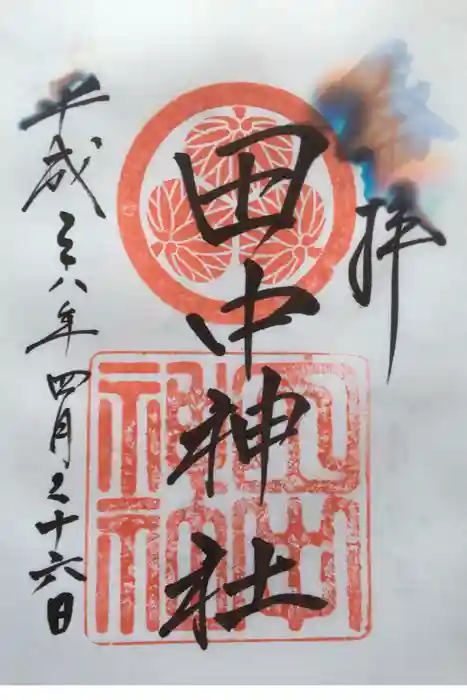 拝
田中神社
平成二八年四月二十六日